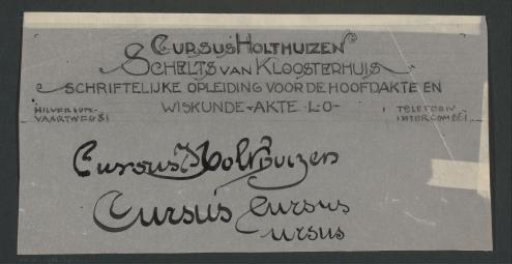 CURSUS HOLTHUIZEN
SCHELTS VAN KLOOSTERHUIS
SCHRIFTELIJKE OPLEIDING VOOR DE HOOFDAKTE EN
WISKUNDE-AKTE L-O-
HILVERSUM-
VAARTWEG 81
TELEFOON
INTERCOMM
Cursus Holthuizen
Cursus Cursus
ursus